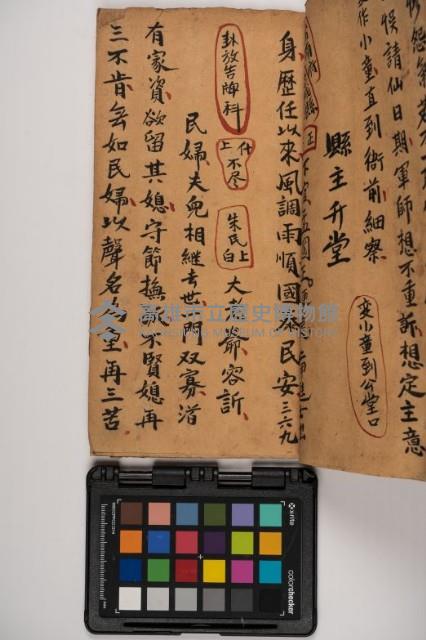 怨
候請仙日期軍師想不重訴想定主意
作小童直到衙前細察
变小童到公堂口
縣主升堂
正
身歷任以來風調雨順國泰民安三六九
卦放告牌科
上不尽
朱氏上白
大老爺容訴
民婦夫兒相繼去世門双寡
有家資欲留其媳守節撫 不賢媳再
三不肯無如民婦以聲名為重再三苦
高雄市立歷史博物館
KAOHSIUNG MUSEUM OF HISTORY
x-rite
colorchecker